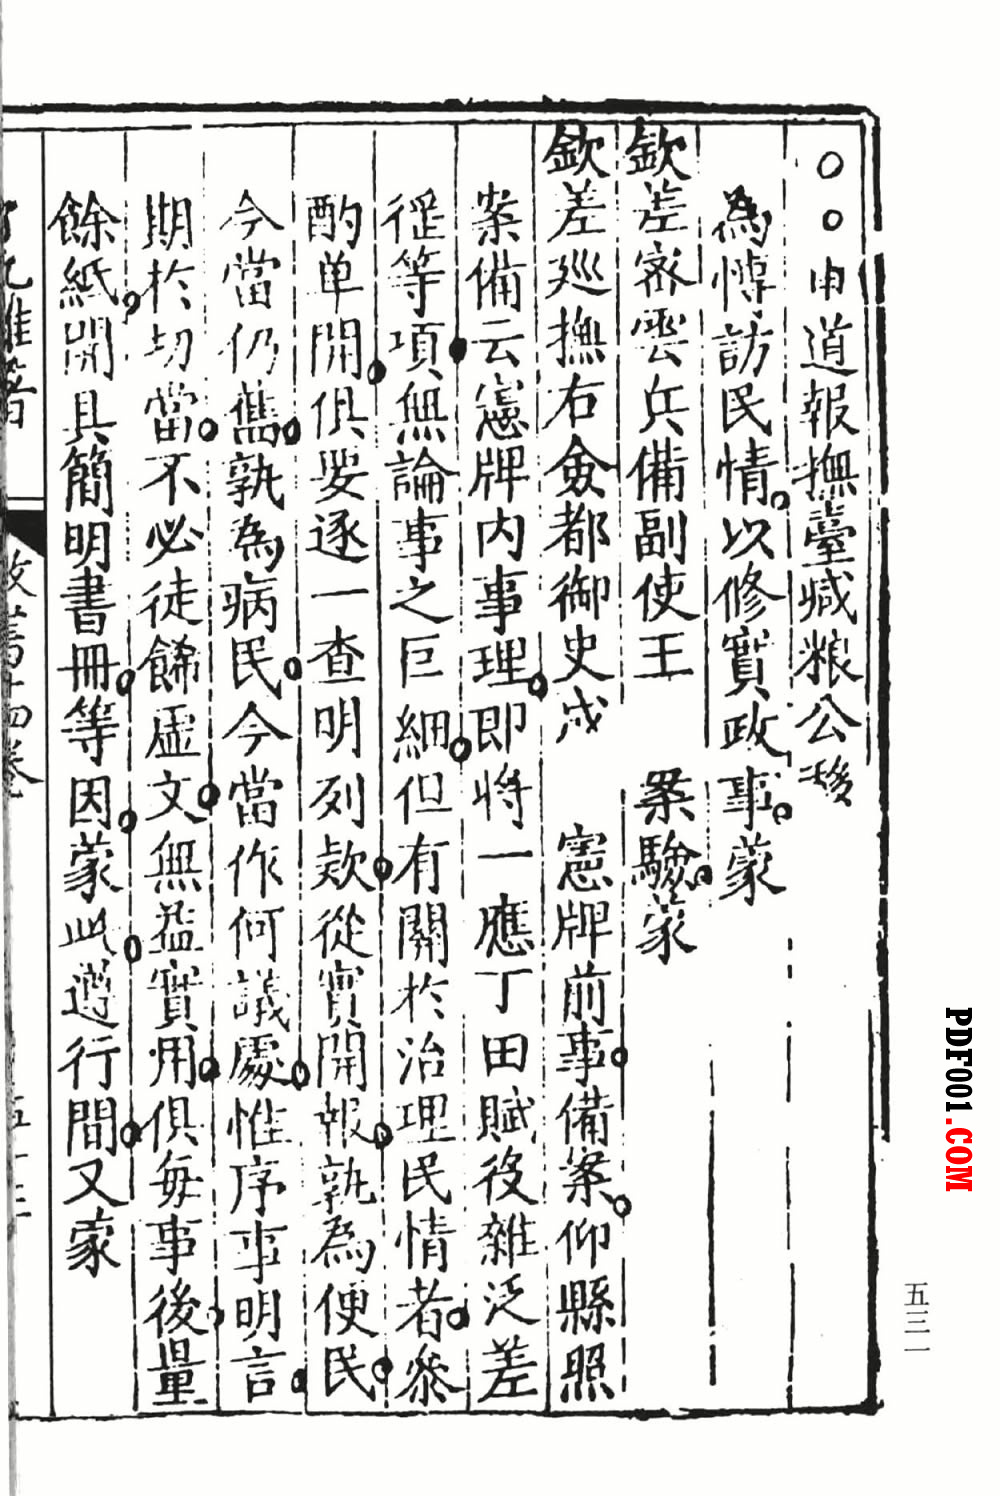 ○○申道報撫臺臧粮公移
為博訪民情以修實政事蒙
欽差密雲兵備副使王 案驗蒙
欽差廵撫右僉都御史成 憲牌前事備案仰縣照
案備云憲牌内事理即将一應丁田賦役雜泛差
徭等項無論事之巨細但有關於治理民情者叅
酌单開俱要逐一查明列欵從實開報孰為便民
今當仍舊孰為病民今當作何議處惟序事明言
期於切當不必徒餙虚文無益實用俱每事後量
餘紙開具簡明書冊等因蒙此遵行間又蒙
敝篋十四卷
五十三
五三一
PDF001.COM